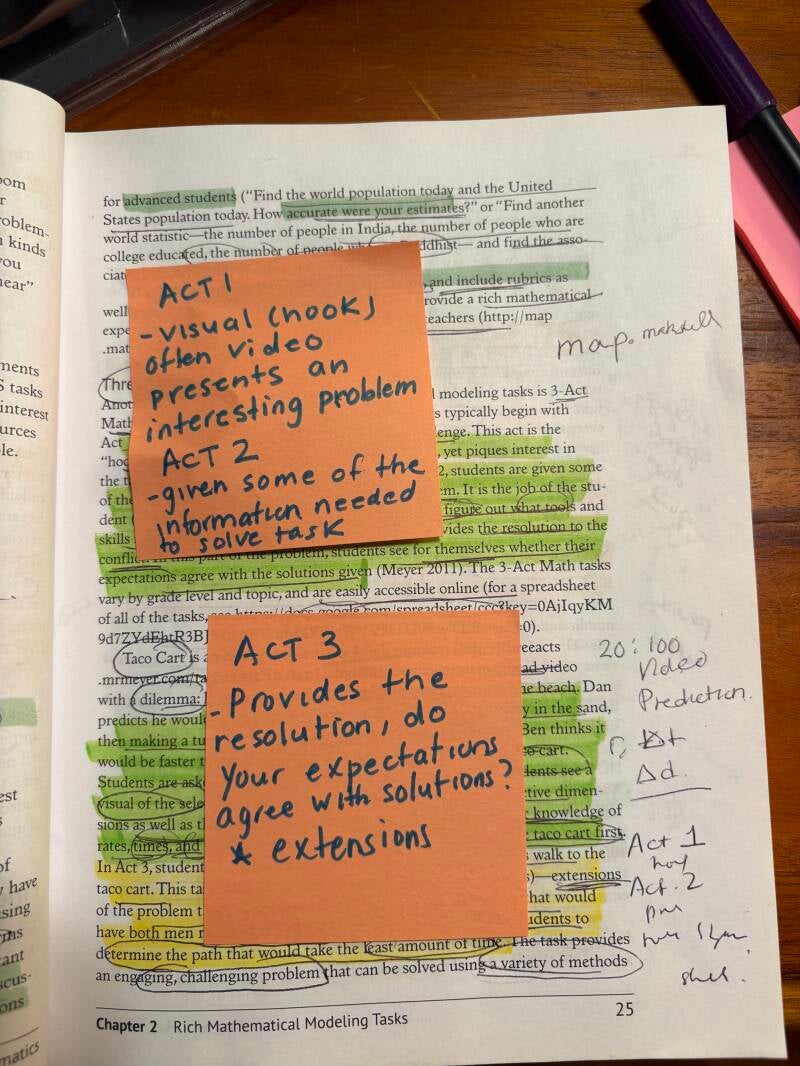 for advanced students (“Find the world population today and the United
States population today. How accurate were your estimates?” or “Find another
world statistic—the number of people in India, the number of people who are
college educated, the number of people ddhist— and find the asso-
ciat
and include rubrics as
well rovide a rich mathematical
expe eachers (http://map
.mat
Thre
Anot l modeling tasks is 3-Act
Math s typically begin with
Act enge. This act is the
“hoo , yet piques interest in
the t 2, students are given some
of the m. It is the job of the stu-
dent ( figure out what tools and
skills vides the resolution to the
conflict. In this part of the problem, students see for themselves whether their
expectations agree with the solutions given (Meyer 2011). The 3-Act Math tasks
vary by grade level and topic, and are easily accessible online (for a spreadsheet
of all of the tasks, see https://docs.google.com/spreadsheet/ccc?key=0AjIqyKM
9d7ZYdEhtR3B] =0).
Taco Cart is a reeacts
.mrmeyer.com/ta ad video
with a dilemma: he beach. Dan
predicts he would y in the sand,
then making a tu Ben thinks it
would be faster t o cart.
Students are aske dents see a
visual of the sele ctive dimen-
sions as well as t knowledge of
rates, times, and taco cart first.
In Act 3, student walk to the
taco cart. This ta s)—extensions
of the problem t hat would
have both men r udents to
determine the path that would take the least amount of time. The task provides
an engaging, challenging problem that can be solved using a variety of methods
Chapter 2 Rich Mathematical Modeling Tasks
25
ACT 1
- visual (hook)
often video
presents an
interesting problem
ACT 2
- given some of the
information needed
to solve task
ACT 3
- Provides the
resolution, do
your expectations
agree with solutions?
* extensions
map.
20:100
Video
Prediction.
Δt
Δd.
Act 1
Act. 2
oom
r
roblem-
n kinds
you
near”
ments
S tasks
interest
urces
le.
est
s
of
y have
sing
ms
ant
scus-
ons
matics